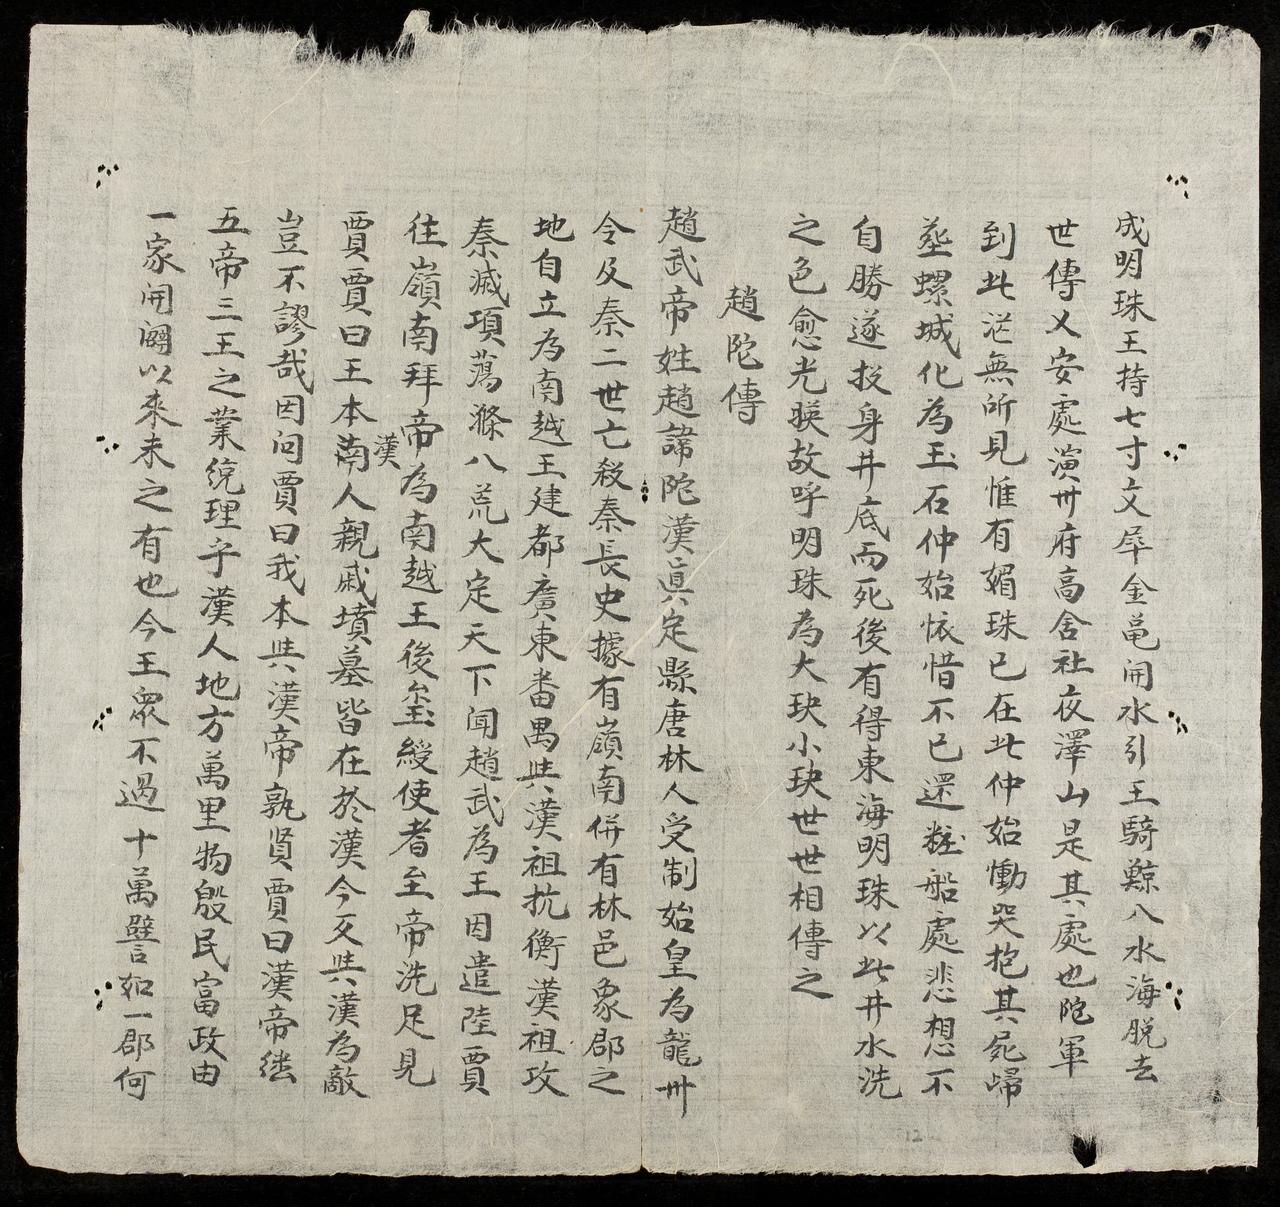 成明珠王持七寸文犀金黽開水引王騎鯨入水海脫去
世傳乂安處演州府高舍社夜澤山是其處也陀軍
到此茫無所見惟有媚珠已在此仲始慟哭抱其屍歸
塟螺城化為玉石仲始恢惜不已還粧船處悲想不
自勝遂投身井底而死後有得東海明珠以此井水洗
之色愈光暎故呼明珠為大玦小玦世世相傳之
趙陀傳
趙武帝姓趙諱陀漢眞定縣唐林人受制始皇為龍卅
令及秦二世亡殺秦長史據有嶺南併有林邑象郡之
地自立為南越王建都廣東畨禺與漢祖抗衡漢祖攻
秦滅項蕩滌八荒大定天下闻趙武為王因遣陸賈
往嶺南拜帝為南越王後玺綬使者至帝洗足見
賈賈曰王本漢人親戚墳墓皆在於漢今又與漢為敵
豈不謬哉因问賈曰我本與漢帝孰賢賈曰漢帝継
五帝三王之業統理乎漢人地方萬里物殷民富政由
一家開闢以來未之有也今王衆不過十萬譬如一郡何